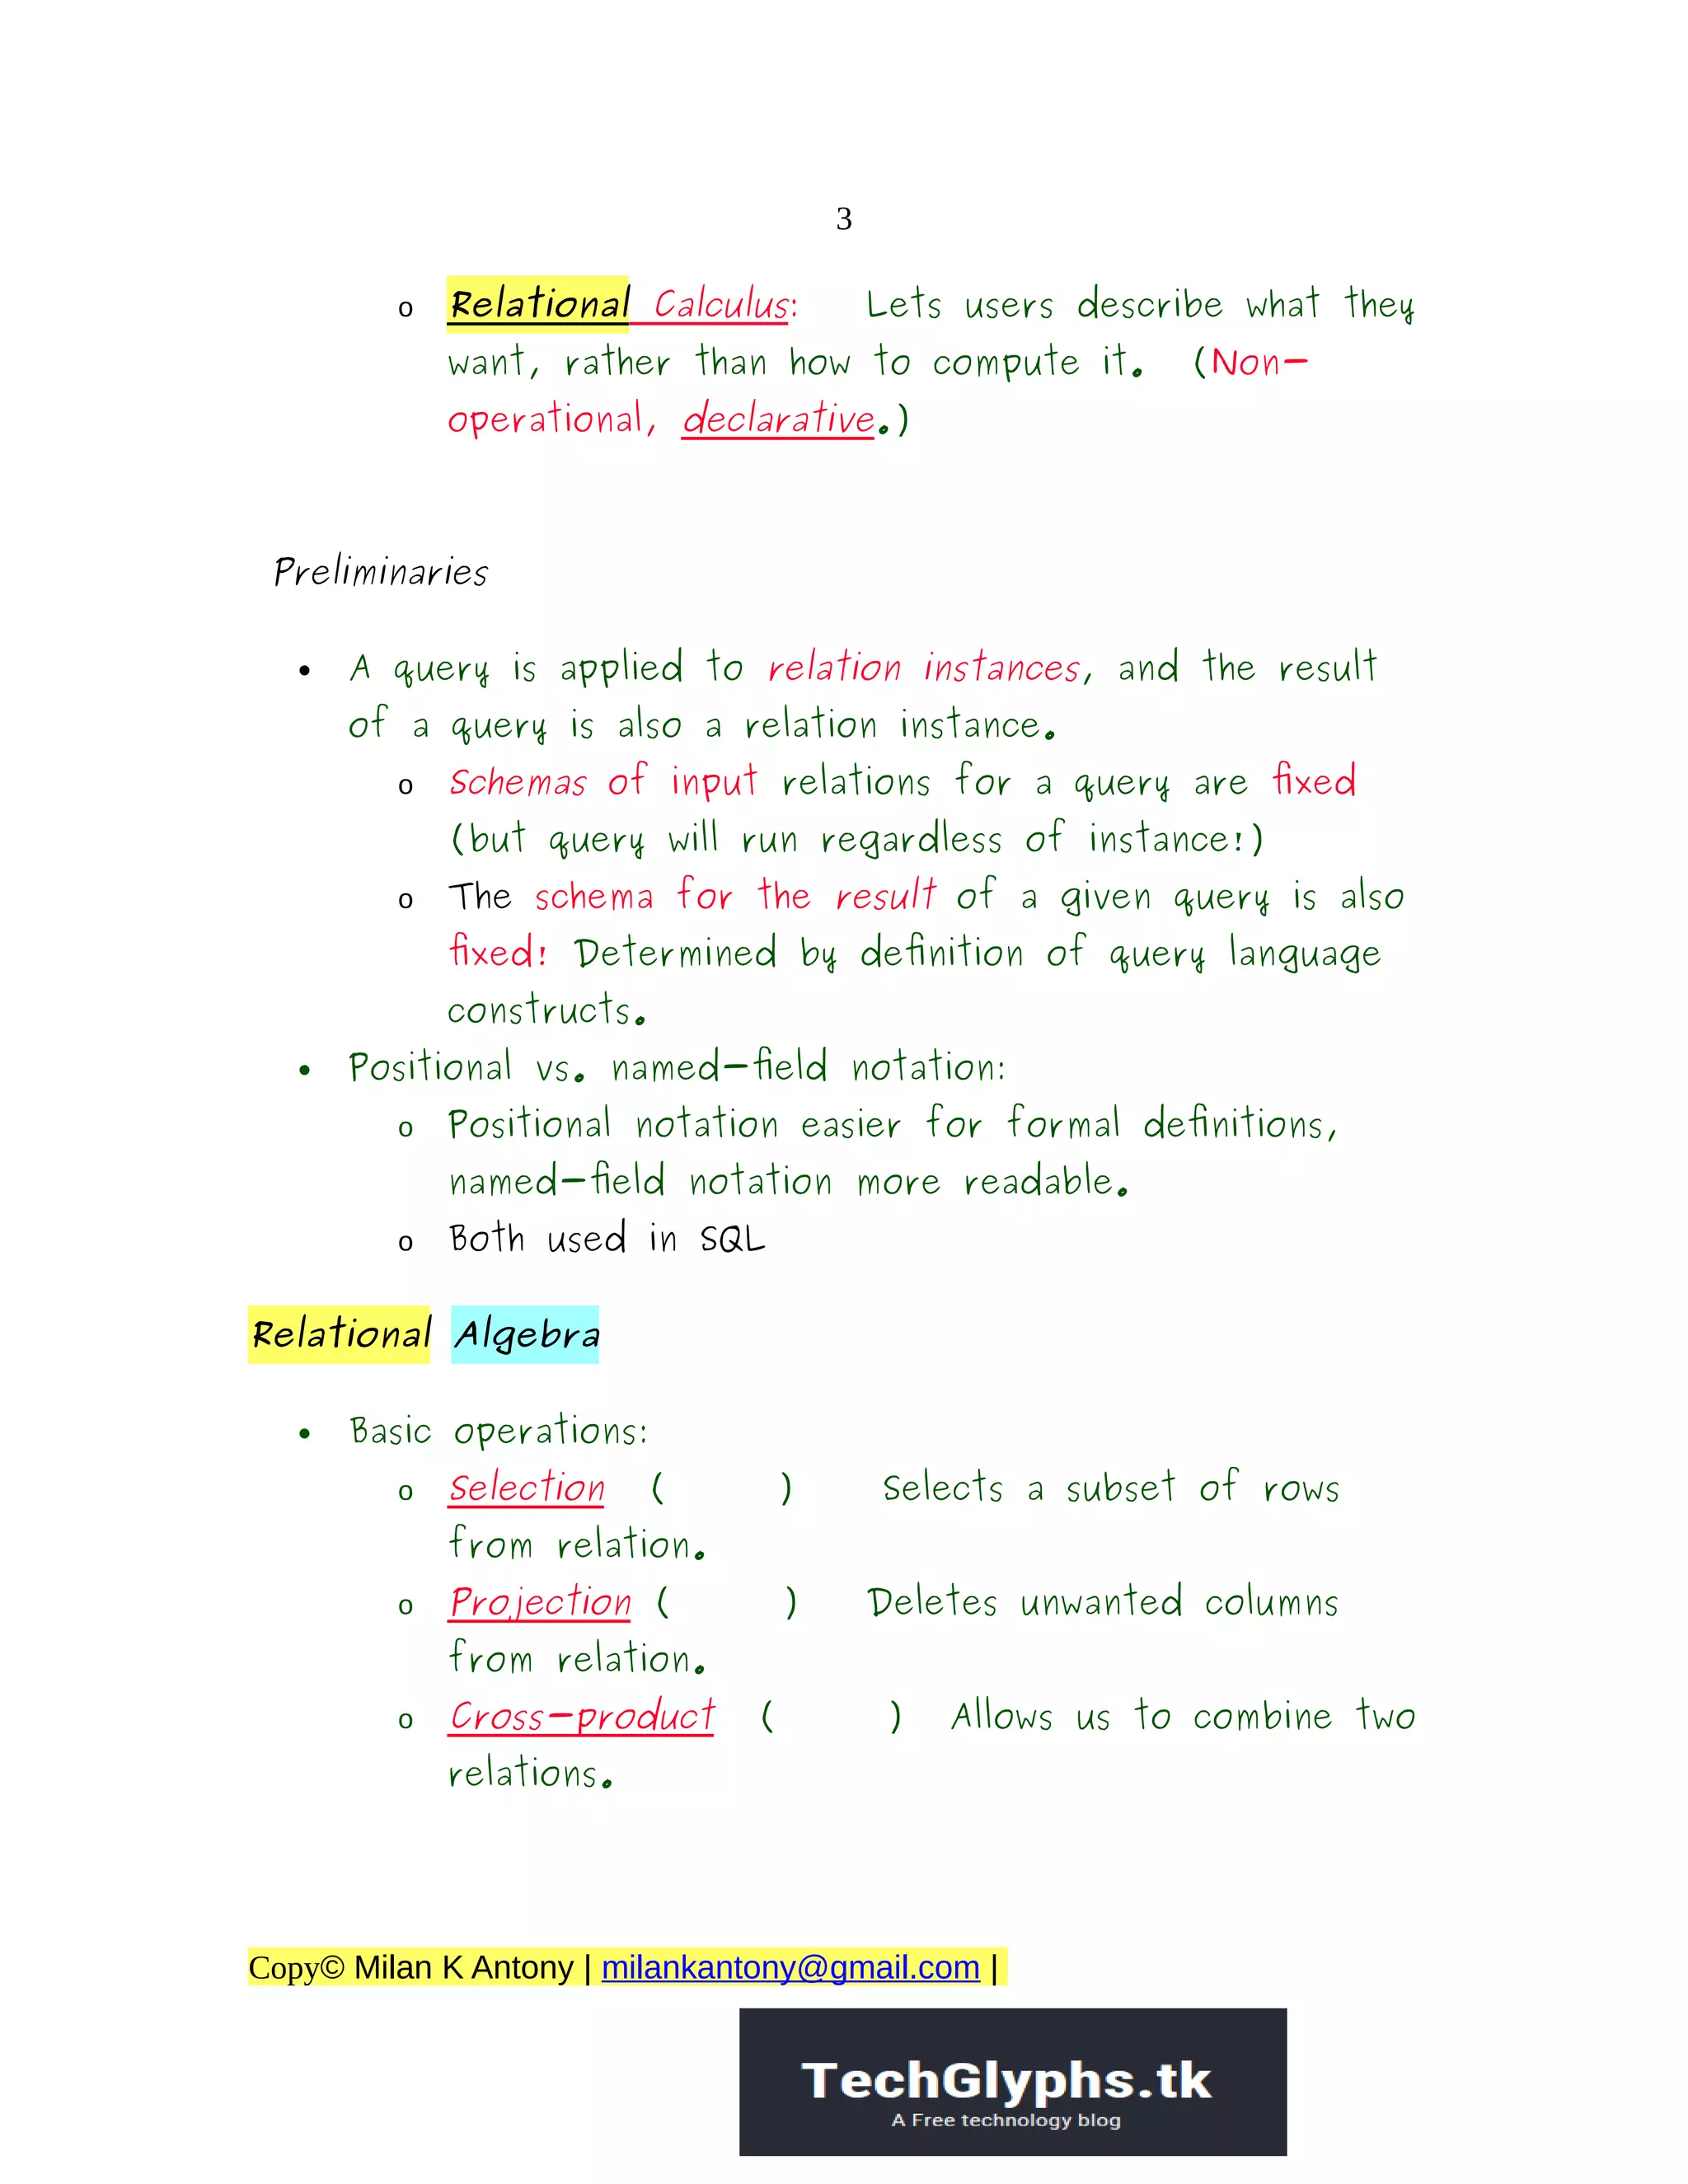 3
o Relational Calculus: Lets users describe what they
want, rather than how to compute it. (Non-
operational, declarative.)
Preliminaries
• A query is applied to relation instances, and the result
of a query is also a relation instance.
o Schemas of input relations for a query are fixed
(but query will run regardless of instance!)
o The schema for the result of a given query is also
fixed! Determined by definition of query language
constructs.
• Positional vs. named-field notation:
o Positional notation easier for formal definitions,
named-field notation more readable.
o Both used in SQL
Relational Algebra
• Basic operations:
o Selection ( ) Selects a subset of rows
from relation.
o Projection ( ) Deletes unwanted columns
from relation.
o Cross-product ( ) Allows us to combine two
relations.
Copy© Milan K Antony | milankantony@gmail.com |
TechGlyphs.tk
A Free technology blog